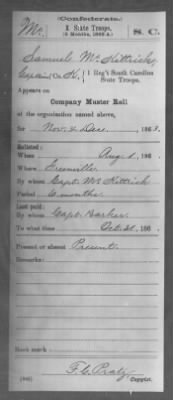 (Confederate.)
Mc.
1 State Troops,
(6 Months, 1863-4.)
S. C.
Samuel Mc Kittrick,
Captain, Co. H, 1 Reg't South Carolina
State Troops.
Appears on
Company Muster Roll
of the organization named above,
for Nov. & Dec., 1863.
Enlisted:
When Aug. 1, 186 .
Where Greenville
By whom Capt. Mc Kittrick
Period 6 months
Last paid:
By whom Capt. Barker
To what time Oct. 31, 186 .
Present or absent Present
Remarks:
Book mark:
F. C. Pratz
Copyist.